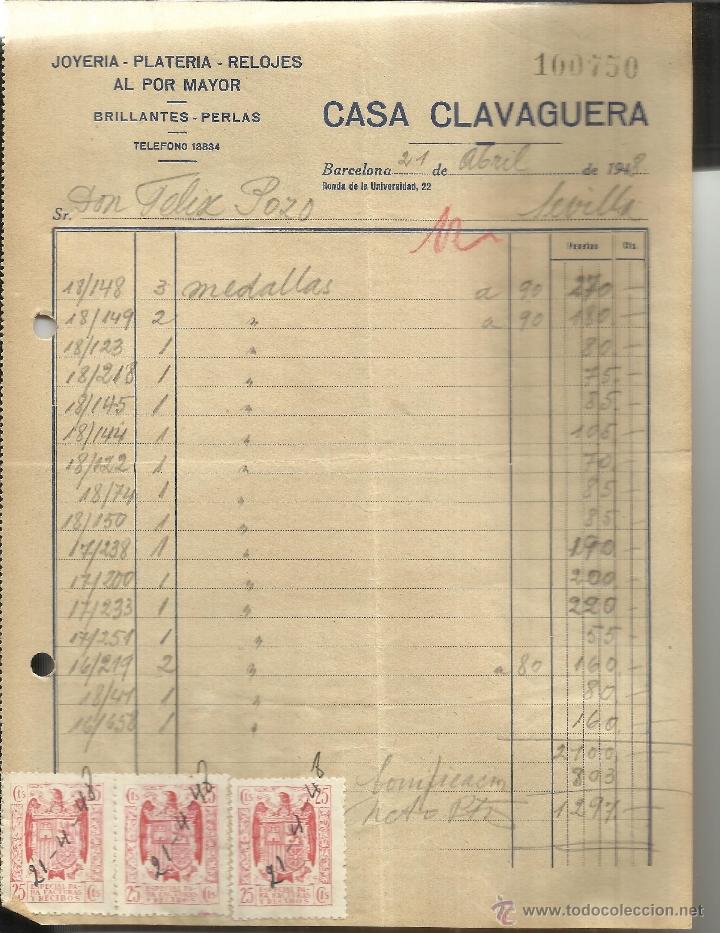 JOYERIA - PLATERIA - RELOJES
AL POR MAYOR
BRILLANTES - PERLAS
TELEFONO 13834
100750
CASA CLAVAGUERA
Barcelona 21 de Abril de 1948
Ronda de la Universidad, 22
Sr. Don Felix Pozo Sevilla
Pesetas Cts.
18/148 3 medallas a 90 270 —
18/149 2 " a 90 180 —
18/123 1 " 80 —
18/218 1 " 75 —
18/145 1 " 85 —
18/144 1 " 105 —
18/122 1 " 70 —
18/74 1 " 85 —
18/150 1 " 85 —
17/238 1 " 190 —
17/200 1 " 200 —
17/233 1 " 220 —
17/251 1 " 55 —
16/219 2 " a 80 160 —
18/41 1 " 80 —
16/658 1 " 160 —
2100 —
bonificacion 803 —
Neto Pts 1297 —
25 Cts 25 25 Cts 25
21-4-48 21-4-48 21-4-48
ESPECIAL PA- ESPECIAL PA- ESPECIAL PA-
RA FACTURAS RA FACTURAS RA FACTURAS
Y RECIBOS Y RECIBOS Y RECIBOS
25 Cts 25 Cts 25 Cts
www.todocoleccion.net